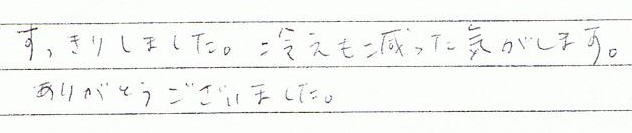 すっきりしました。冷えも減った気がします。
ありがとうございました。